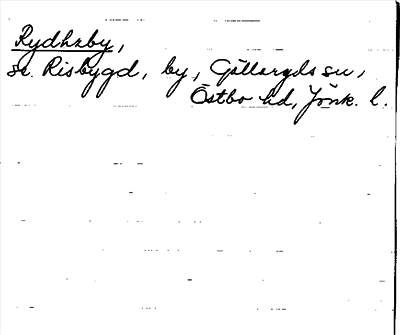 Rydhzby,
se. Risbygd, by, Gällaryds sn,
Östbo hd, Jönk. l.